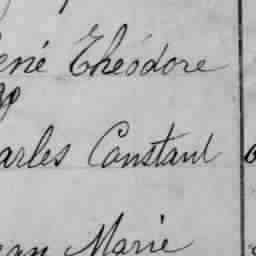 ené Théodore
arles Constant
ean Marie